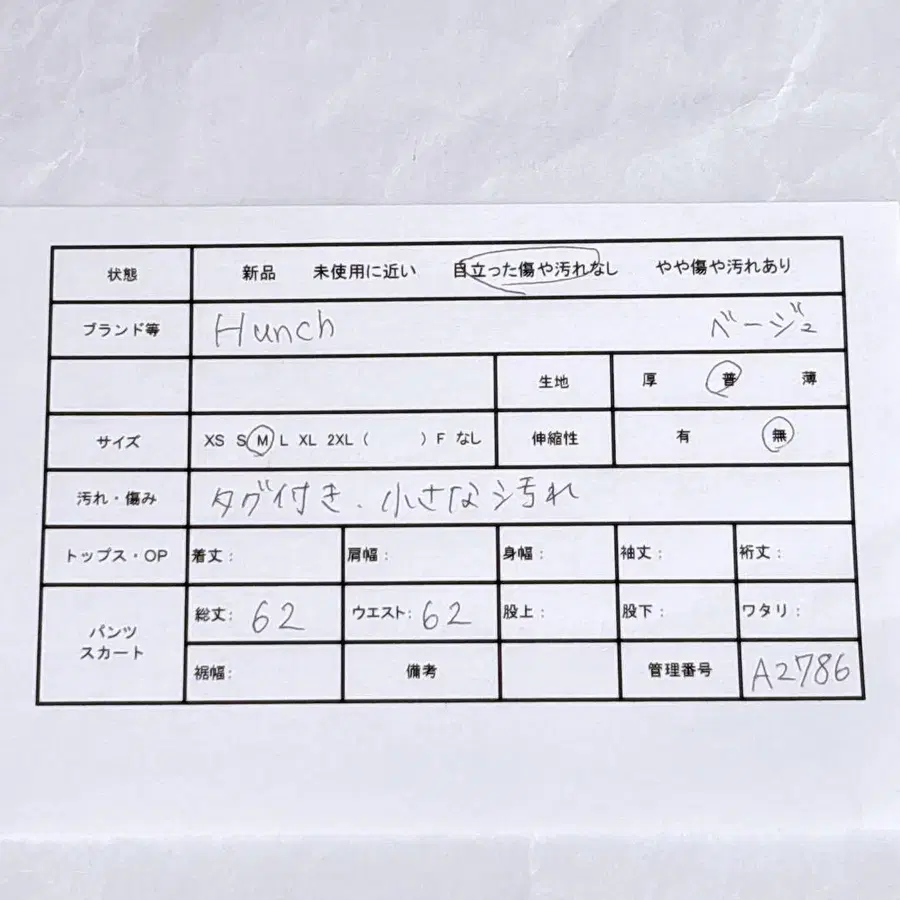 状態 新品 未使用に近い 目立った傷や汚れなし やや傷や汚れあり
ブランド等 Hunch ベージュ
生地 厚 普 薄
サイズ XS S M L XL 2XL ( ) F なし 伸縮性 有 無
汚れ・傷み タグ付き、小さな汚れ
トップス・OP 着丈: 肩幅: 身幅: 袖丈: 裄丈:
パンツ スカート 総丈: 62 ウエスト: 62 股上: 股下: ワタリ:
裾幅: 備考 管理番号 A2786